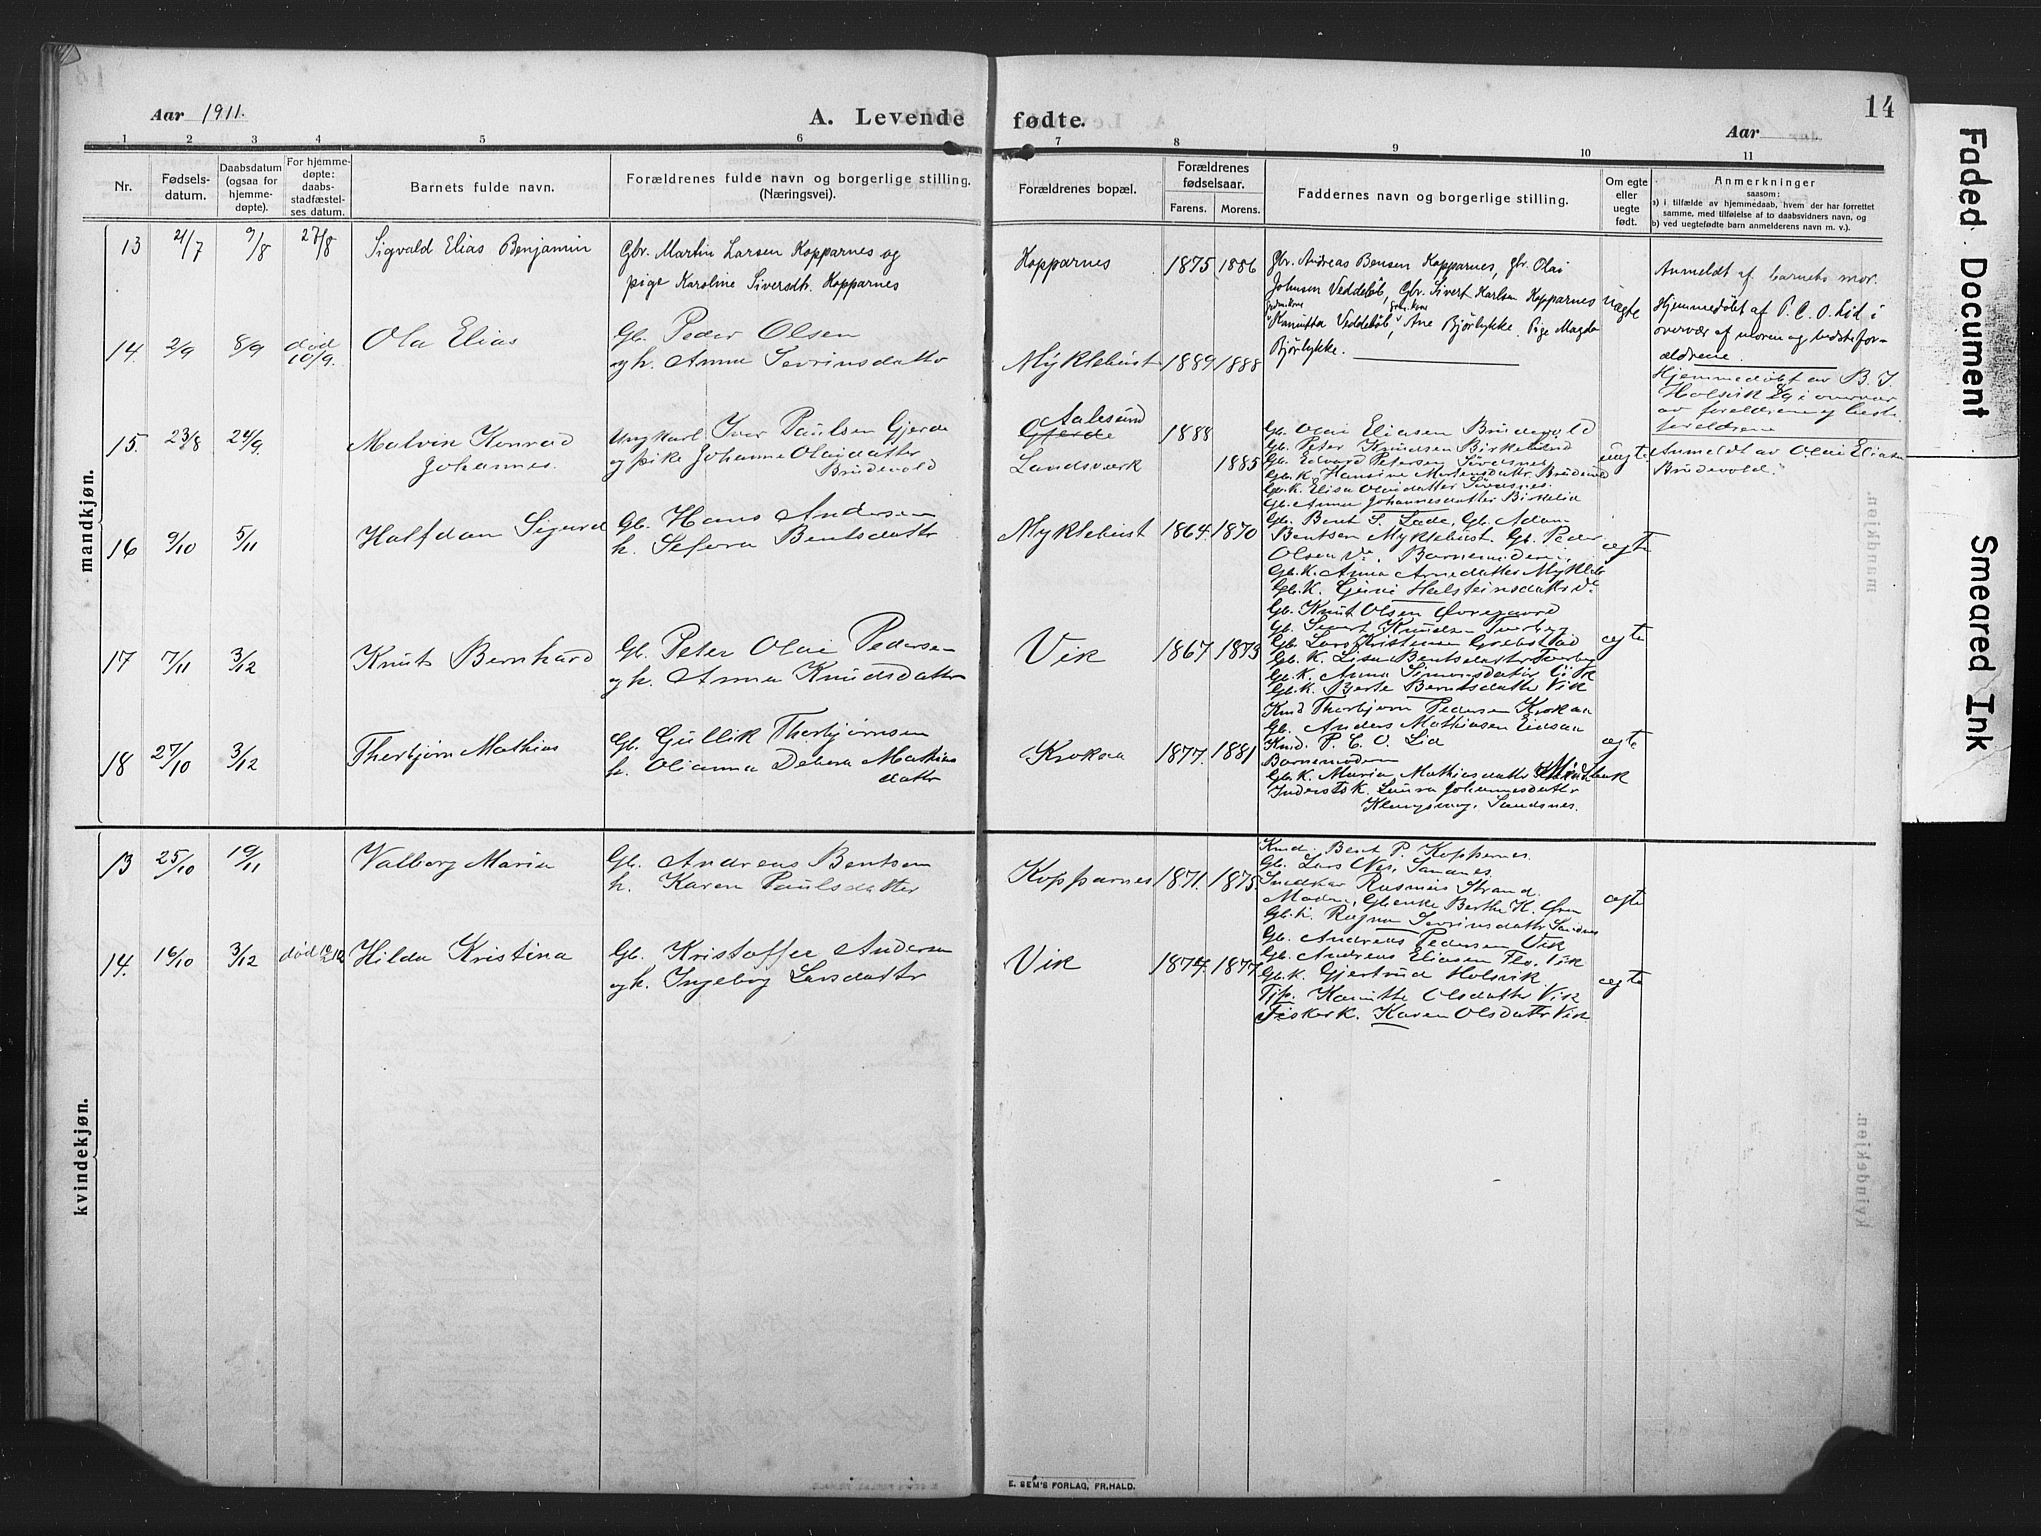 Aar 1911.
A. Levende fødte.
Aar
14
1 2 3 4 5 6 7 8 9 10 11
Nr.
Fødsels-
datum.
Daabsdatum
(ogsaa for
hjemme-
døpte).
For hjemme-
døpte:
daabs-
stadfæstel-
ses datum.
Barnets fulde navn.
Forældrenes fulde navn og borgerlige stilling.
(Næringsvei).
Forældrenes bopæl.
Forældrenes
fødselsaar.
Farens. Morens.
Faddernes navn og borgerlige stilling.
Om egte
eller
uegte
født.
Anmerkninger
saasom:
a) i tilfælde av hjemmedaab, hvem der har forrettet
samme, med tilføielse af to daabsvidners navn, og
b) ved uegtefødte barn anmelderens navn m. v.).
mandkjøn.
13 2/7 9/8 27/8 Sigvald Elias Benjamin
Gbr. Martin Larsen Kopparnes og
pige Karoline Siversdt. Kopparnes
Kopparnes 1875 1886
Gbr. Andreas Bensen Kopparnes, gbr. Olai
Johnsen Veddeløb, Gbr. Sivert Karlsen Kopparnes
Kanutta Veddeløb, Ane Bjørlykke. Pige Magda
Bjørlykke.
uægte
Anmeldt af barnets mor.
Hjemmedøbt af P. C. O. Lid i
overvær af moren og bedstefor-
ældrene.
14. 2/9 8/9 død
10/9.
Ola Elias
Gb. Peder Olsen
og h. Anna Sevrinsdatter
Myklebust 1889 1888
Hjemmedøbt av B. J.
Holsvik 8/9 i overvær
av foreldrene og beste-
foreldrene
15. 23/8 24/9. Malvin Konrad
Johannes.
Ungkarl Iver Paulsen Gjerde
og pike Johanne Olaidatter
Brudevold
Aalesund
Gjerde
Landsværk
1888
1885
Gb. Olai Eliasen Brudevold
Gb. Peter Knudsen Birkelund
Gb. Edvard Petersen Sørdsnes
Gb. K. Hansine Mortensdatter Brudevold
Gb. K. Elisa Olaidatter Sørdsnes.
Gb. Anna Johannesdatter Birkelid
uegte.
Anmeldt av Olai Elias
Brudevold.
16 9/10 5/11 Halfdan Sigurd
Gb. Hans Andersen
h. Sefora Bentsdattr
Myklebust 1864. 1870
Gb. Bent S. Lade, Gb. Adam
Bentsen Myklebust. Gb. Peder
Olsen do. Barnemoderen,
Gb. K. Anna Arnedatter Mykleb.
Gb. K. Gurine Halsteinsdatter do.
egte
17 7/11 3/12 Knut Bernhard
Gb. Peter Olai Pedersen
og h. Anna Knudsdattr
Vik 1867 1873
Gb. Knut Olsen Øvregaard
Gb. Sivert Knudsen Tverbyg
Gb. Lars Kristensen Grebstad
Gb. K. Lisa Bentsdatter Tverbyg
Gb. K. Anna Simonsdatter Vik
Gb. K. Berte Berntsdatter Vik
egte
18 27/10 3/12 Therbjørn Mathias
Gb. Gullik Therbjørnsen
h. Olianna Debora Mathias
dattr
Krokaa 1877. 1881
Kmd Thorbjørn Pedersen Krokaa
Gb. Anders Mathiasen Eidsaa
Kmd. P. C. O. Lid
Barnemoderen
Gb. K. Maria Mathiasdatter
Inderstsk. Laura Johannesdattr
Klungsvag, Sandsnes.
egte
kvindekjøn.
13 25/10 19/11 Valborg Maria
Gb. Andreas Bentsen
h. Karen Paulsdatter
Kopparnes 1871. 1875.
Kmd. Bent P. Kopparnes.
Gb. Lars Nes, Sandnes.
Snedker Rasmus Strand.
Moderen, Gb. enke Berthe K. Øren
Gb. k. Ragna Sevrinsdatter Sandnes
egte
14. 16/10 3/12 død Hilda Kristina
Gb. Kristoffer Andersen
og h. Ingeborg Larsdattr
Vik 1877. 1877.
Gb. Andreas Pedersen Vik
Gb. Andreas Eliasen Flo, Vik
Gb. K. Gjertrud Holsvik
Tjp. Kanutte Olsdatter Vik
Fiskerk. Karen Olsdattr Vik.
egte
E. SEM'S FORLAG, FR.HALD.
Faded Document
Smeared Ink